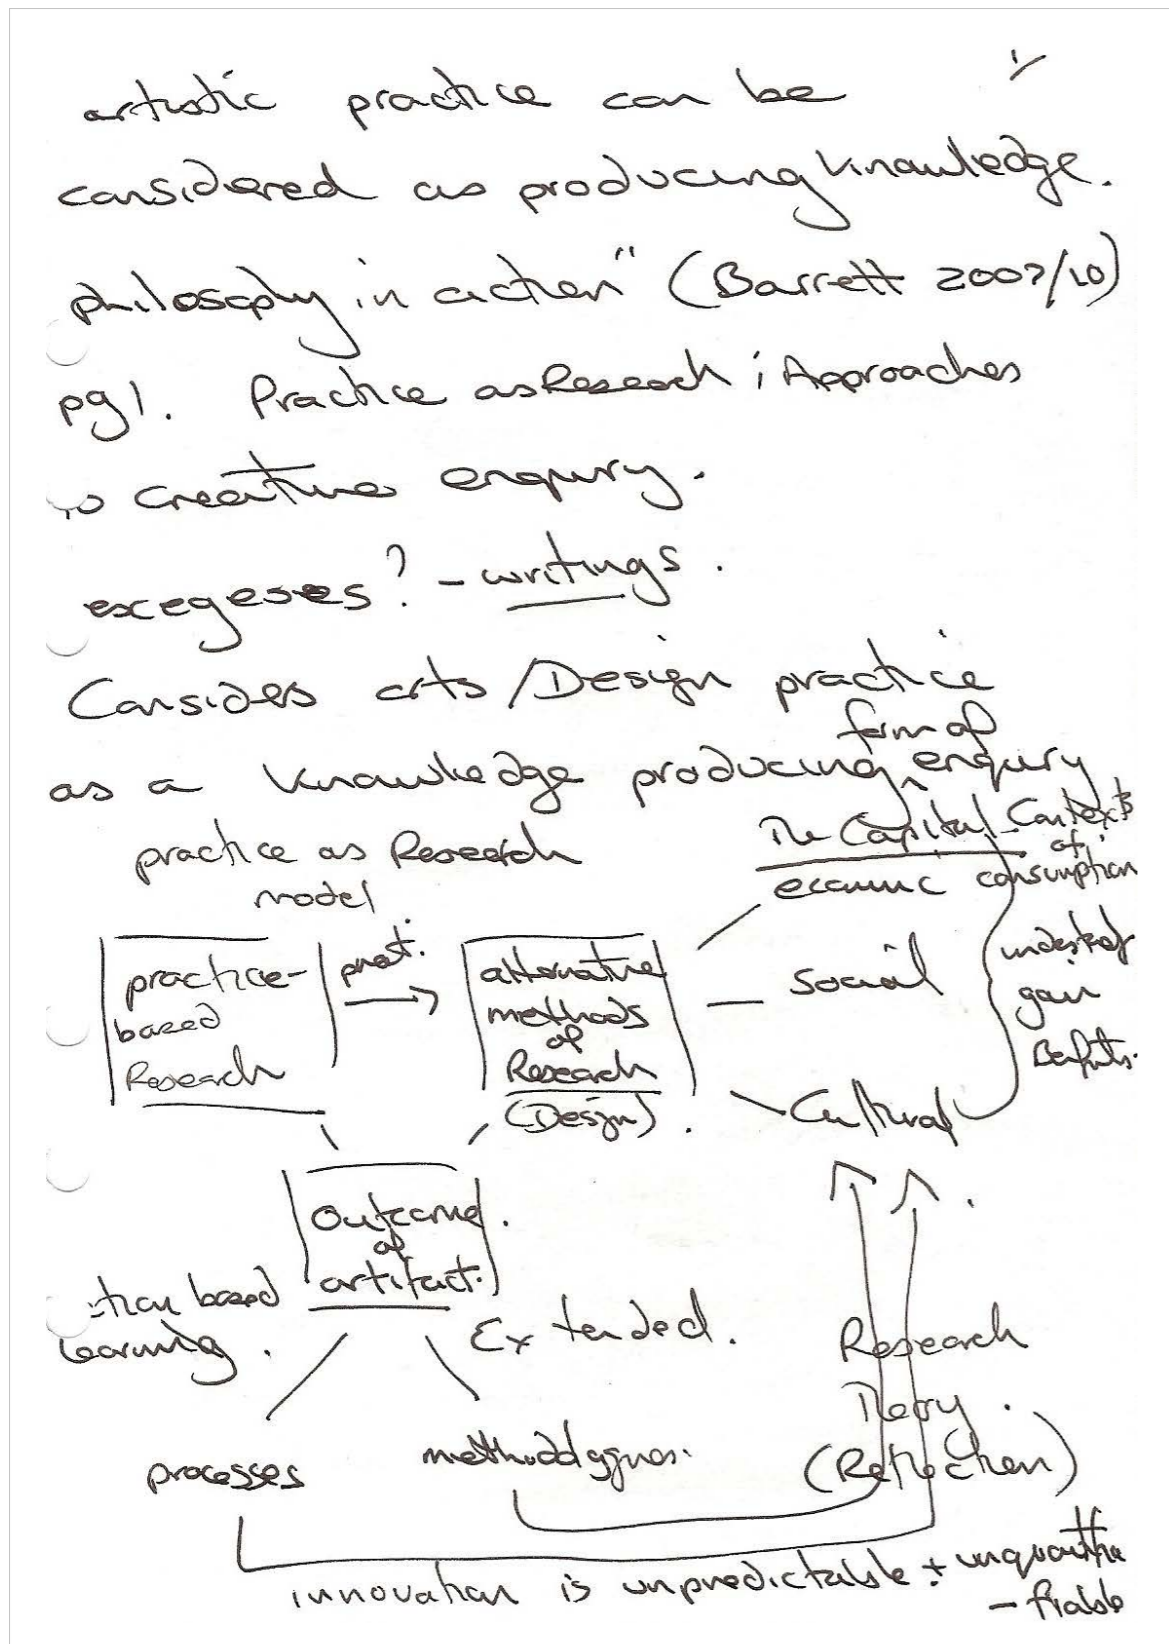 artistic practice can be
considered as producing knowledge.
philosophy in action" (Barrett 200?/10)
pg1. Practice as Research ; Approaches
to creative enqury.
excegeses? - writings.
Considers arts/Design practice
form of
as a knowledge producing enqury
practice as Research
model
The Capital - Contexts
of
economic consumption
practice-
based
Research
alternative
methods
of
Research
(Design).
Social
Cultural
gain
Benfits.
Outcome.
of
artifact.
-tion based
Learning.
Extended.
Research
Theory.
(Reflection)
processes
methodologies.
innovation is unpredictable + unquanti
-fiable